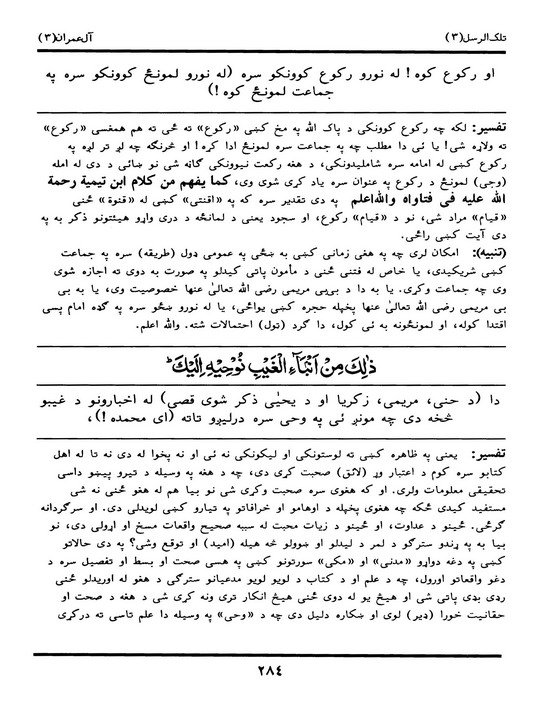 تلك الرسل(٣)
آل عمران(٣)
او رکوع کوه! له نورو رکوع کوونکو سره (له نورو لمونځ کوونکو سره په
جماعت لمونځ کوه!)
تفسیر: لکه چه رکوع کوونکی د پاک الله په مخ کښی «رکوع» ته ځی ته هم همغسی «رکوع»
ته ولاړه شی! یا ئی دا مطلب چه په جماعت سره لمونځ ادا کړه! او څرنګه چه لږ تر لږه په
رکوع کښی له امامه سره شاملیدونکی، د هغه رکعت نیوونکی ګاڼه شی نو ښائی د دی له امله
(وجی) لمونځ د رکوع په عنوان سره یاد کړی شوی وی، کما یفهم من کلام ابن تیمیة رحمة
الله علیه فی فتاواه والله اعلم په دی تقدیر سره که په «اقنتی» کښی له «قنوة» ځنی
«قیام» مراد شی، نو د «قیام» رکوع، او سجود یعنی د لمانځه د دری واړو هیئتونو ذکر به په
دی آیت کښی راځی.
(تنبیه): امکان لری چه په هغی زمانی کښی به ښځی په عمومی ډول (طریقه) سره په جماعت
کښی شریکیدی، یا خاص له فتنی ځنی د مأمون پاتی کیدلو په صورت به دوی ته اجازه شوی
وی چه جماعت وکړی. یا به دا د بی‌بی مریمی رضی الله تعالیٰ عنها خصوصیت وی، یا به بی
بی مریمی رضی الله تعالیٰ عنها پخپله حجره کښی یواځی، یا له نورو ښځو سره په ګډه امام پسی
اقتدا کوله، او لمونځونه به ئی کول، دا ګرد (ټول) احتمالات شته. والله اعلم.
ذٰلِكَ مِنْ اَنْۢبَآءِ الْغَيْبِ نُوْحِيْهِ اِلَيْكَ ؕ
دا (د حنی، مریمی، زکریا او د یحیٰی ذکر شوی قصی) له اخبارونو د غیبو
څخه دی چه مونږ ئی په وحی سره درلیږو تاته (ای محمده!)،
تفسیر: یعنی په ظاهره کښی ته لوستونکی او لیکونکی نه ئی او نه پخوا له دی نه تا له اهل
کتابو سره کوم د اعتبار وړ (لائق) صحبت کړی دی، چه د هغه په وسیله د تیرو پیښو داسی
تحقیقی معلومات ولری. او که هغوی سره صحبت وکړی شی نو بیا هم له هغو ځنی نه شی
مستفید کیدی ځکه چه هغوی پخپله د اوهامو او خرافاتو په تیارو کښی لویدلی دی. او سرګردانه
ګرځی. ځینو د عداوت، او ځینو د زیات محبت له سببه صحیح واقعات مسخ او اړولی دی، نو
بیا به په ړندو سترګو د لمر د لیدلو او ښوولو څه هیله (امید) او توقع وشی؟ په دی حالاتو
کښی په دغه دواړو «مدنی» او «مکی» سورتونو کښی په هسی صحت او بسط او تفصیل سره د
دغو واقعاتو اورول، چه د علم او د کتاب د لویو لویو مدعیانو سترګی د هغو له اوریدلو ځنی
رډی بډی پاتی شی او هیڅ یو له دوی ځنی هیڅ انکار تری ونه کړی شی د هغه د صحت او
حقانیت خورا (ډیر) لوی او ښکاره دلیل دی چه د «وحی» په وسیله دا علم تاسی ته درکړی
٢٨٤